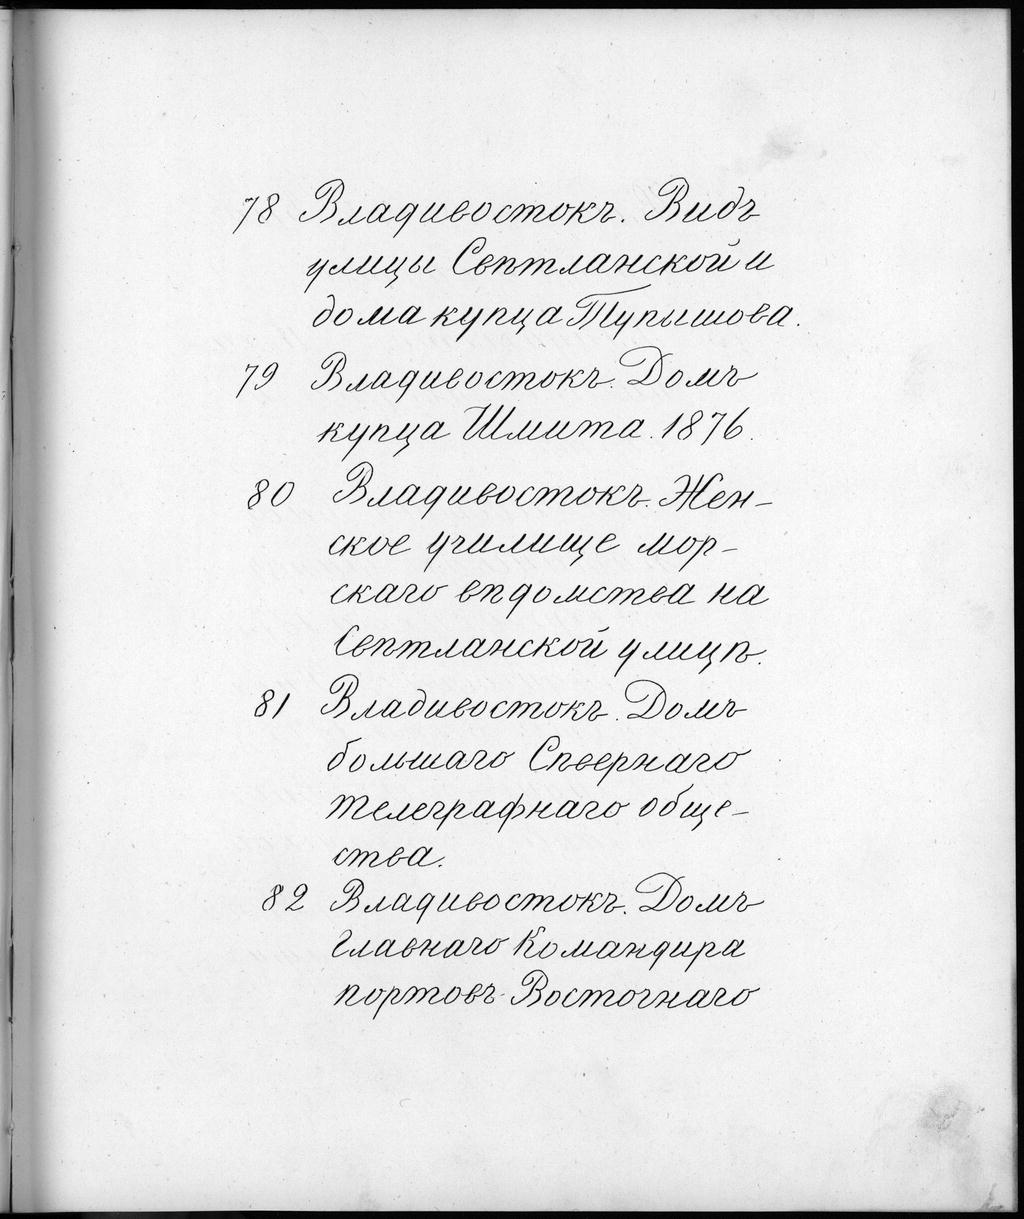 78 Владивостокъ. Видъ
улицы Свѣтланской и
дома купца Тупышова.
79 Владивостокъ. Домъ
купца Шмита. 1876.
80 Владивостокъ. Жен-
ское училище мор-
скаго вѣдомства на
Свѣтланской улицѣ.
81 Владивостокъ. Домъ
большаго Сѣвернаго
телеграфнаго обще-
ства.
82 Владивостокъ. Домъ
Главнаго Командира
портовъ Восточнаго